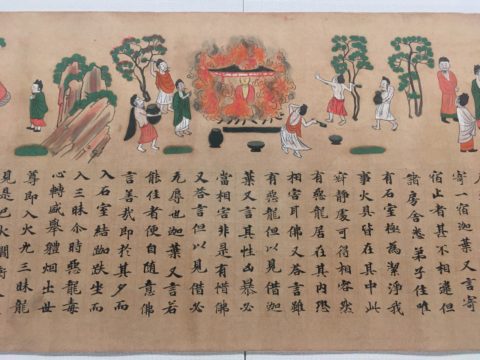 寄一宿迦葉又言寄
宿止者甚不相違但
諸房舍悉弟子住唯
有石室極為潔淨我
事火具皆在其中此
寂靜處可得相容然
有惡龍居在其內恐
相害耳佛又答言雖
有惡龍但以見借迦
葉又言其性凶暴必
當相害非是有惜佛
又答言但以見借必
无辱也迦葉又言若
能住者便自隨意佛
言善哉即於其夕而
入石室結跏趺坐而
入三昧尒時惡龍毒
心轉盛舉體烟出世
尊即入火光三昧龍
見是已火